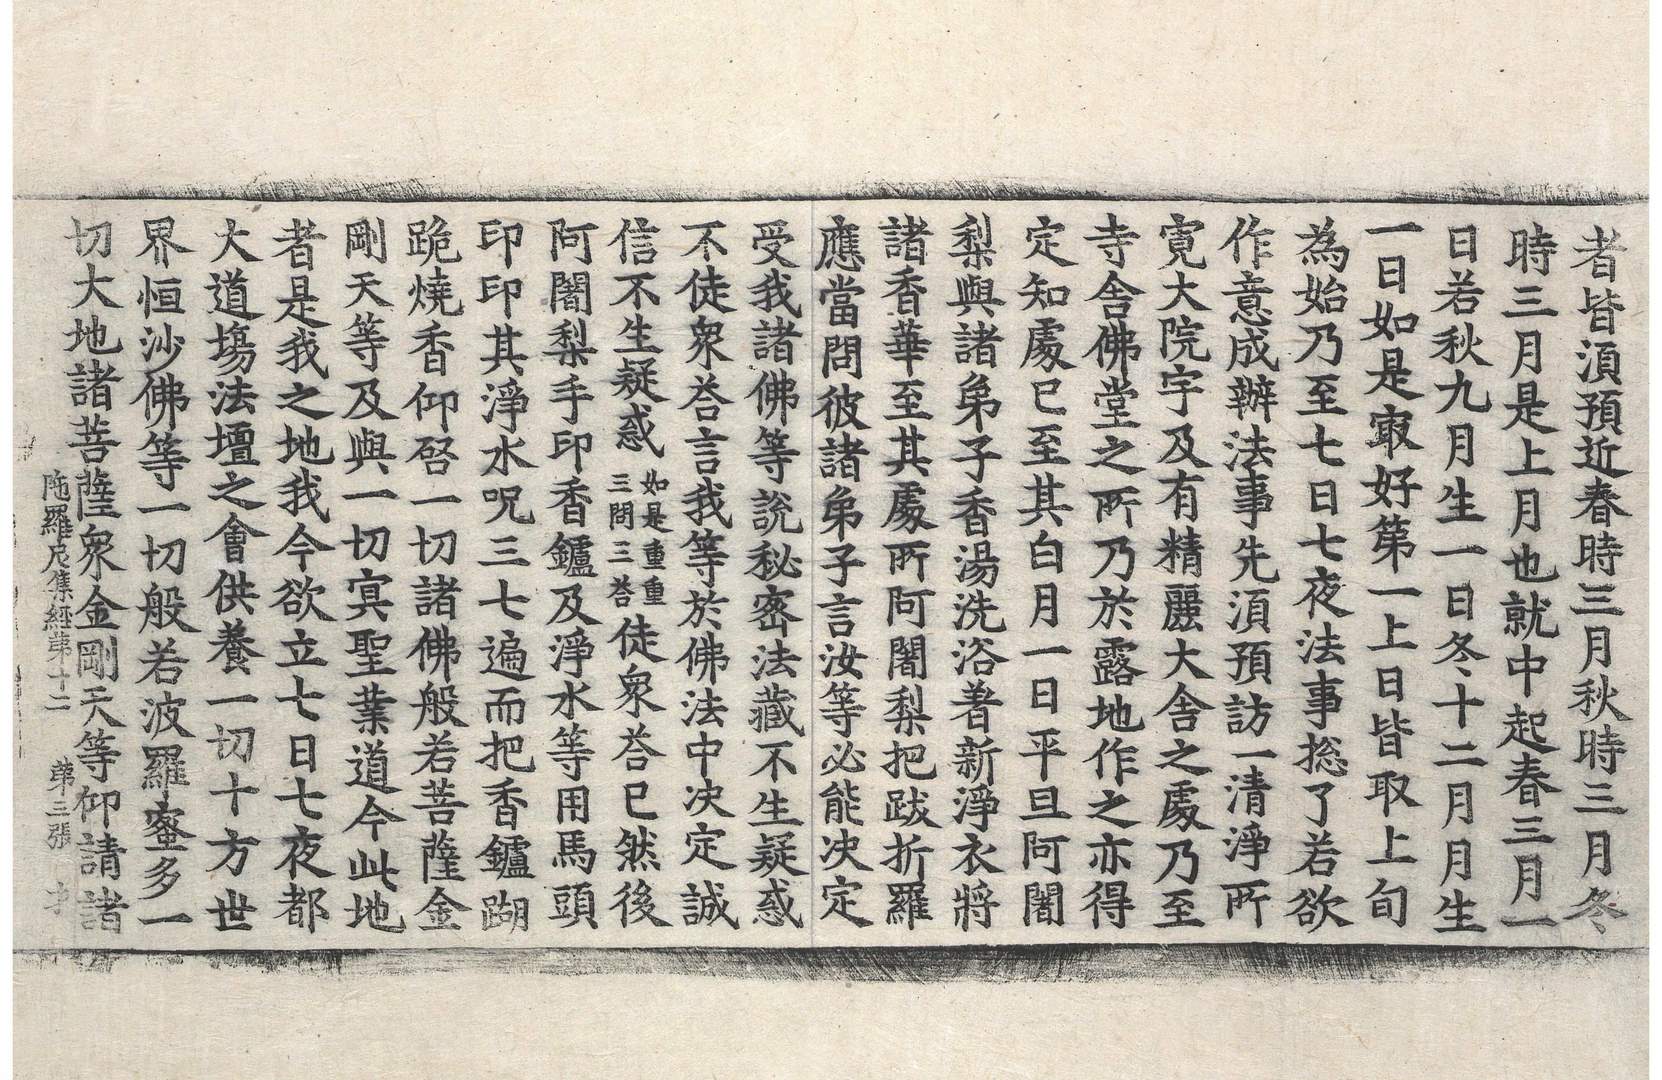 者皆湏預近春時三月秋時三月冬
時三月是上月也就中起春三月一
日若秋九月生一日冬十二月月生
一日如是㝡好第一上日皆取上旬
為始乃至七日七夜法事捴了若欲
作意成辦法事先湏預訪一清淨所
寛大院宇及有精麗大舎之處乃至
寺舎佛堂之所乃於露地作之亦得
定知處已至其白月一日平旦阿闍
梨與諸弟子香湯洗浴著新淨衣將
諸香華至其處所阿闍梨把跋折羅
應當問彼諸弟子言汝等必能决定
受我諸佛等說秘密法藏不生疑惑
不徒衆荅言我等於佛法中决定誠
信不生疑惑如是重重三問三荅徒衆荅已然後
阿闍梨手印香鑪及淨水等用馬頭
印印其淨水呪三七遍而把香鑪䠒
跪燒香仰啓一切諸佛般若菩薩金
剛天等及與一切冥聖業道今此地
者是我之地我今欲立七日七夜都
大道塲法壇之會供養一切十方世
界恒沙佛等一切般若波羅蜜多一
切大地諸菩薩衆金剛天等仰請諸
陁羅尼集經第十二　第三張　才